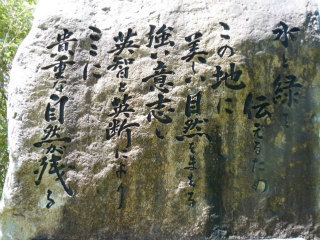 水と緑を
伝えるため
この地に
美しい自然を
強い意志と
英智と英断により
ここに
貴重な自然が残る